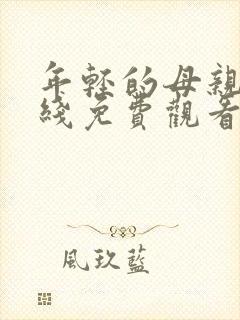 年轻的母親
綫免費觀看
風玖藍